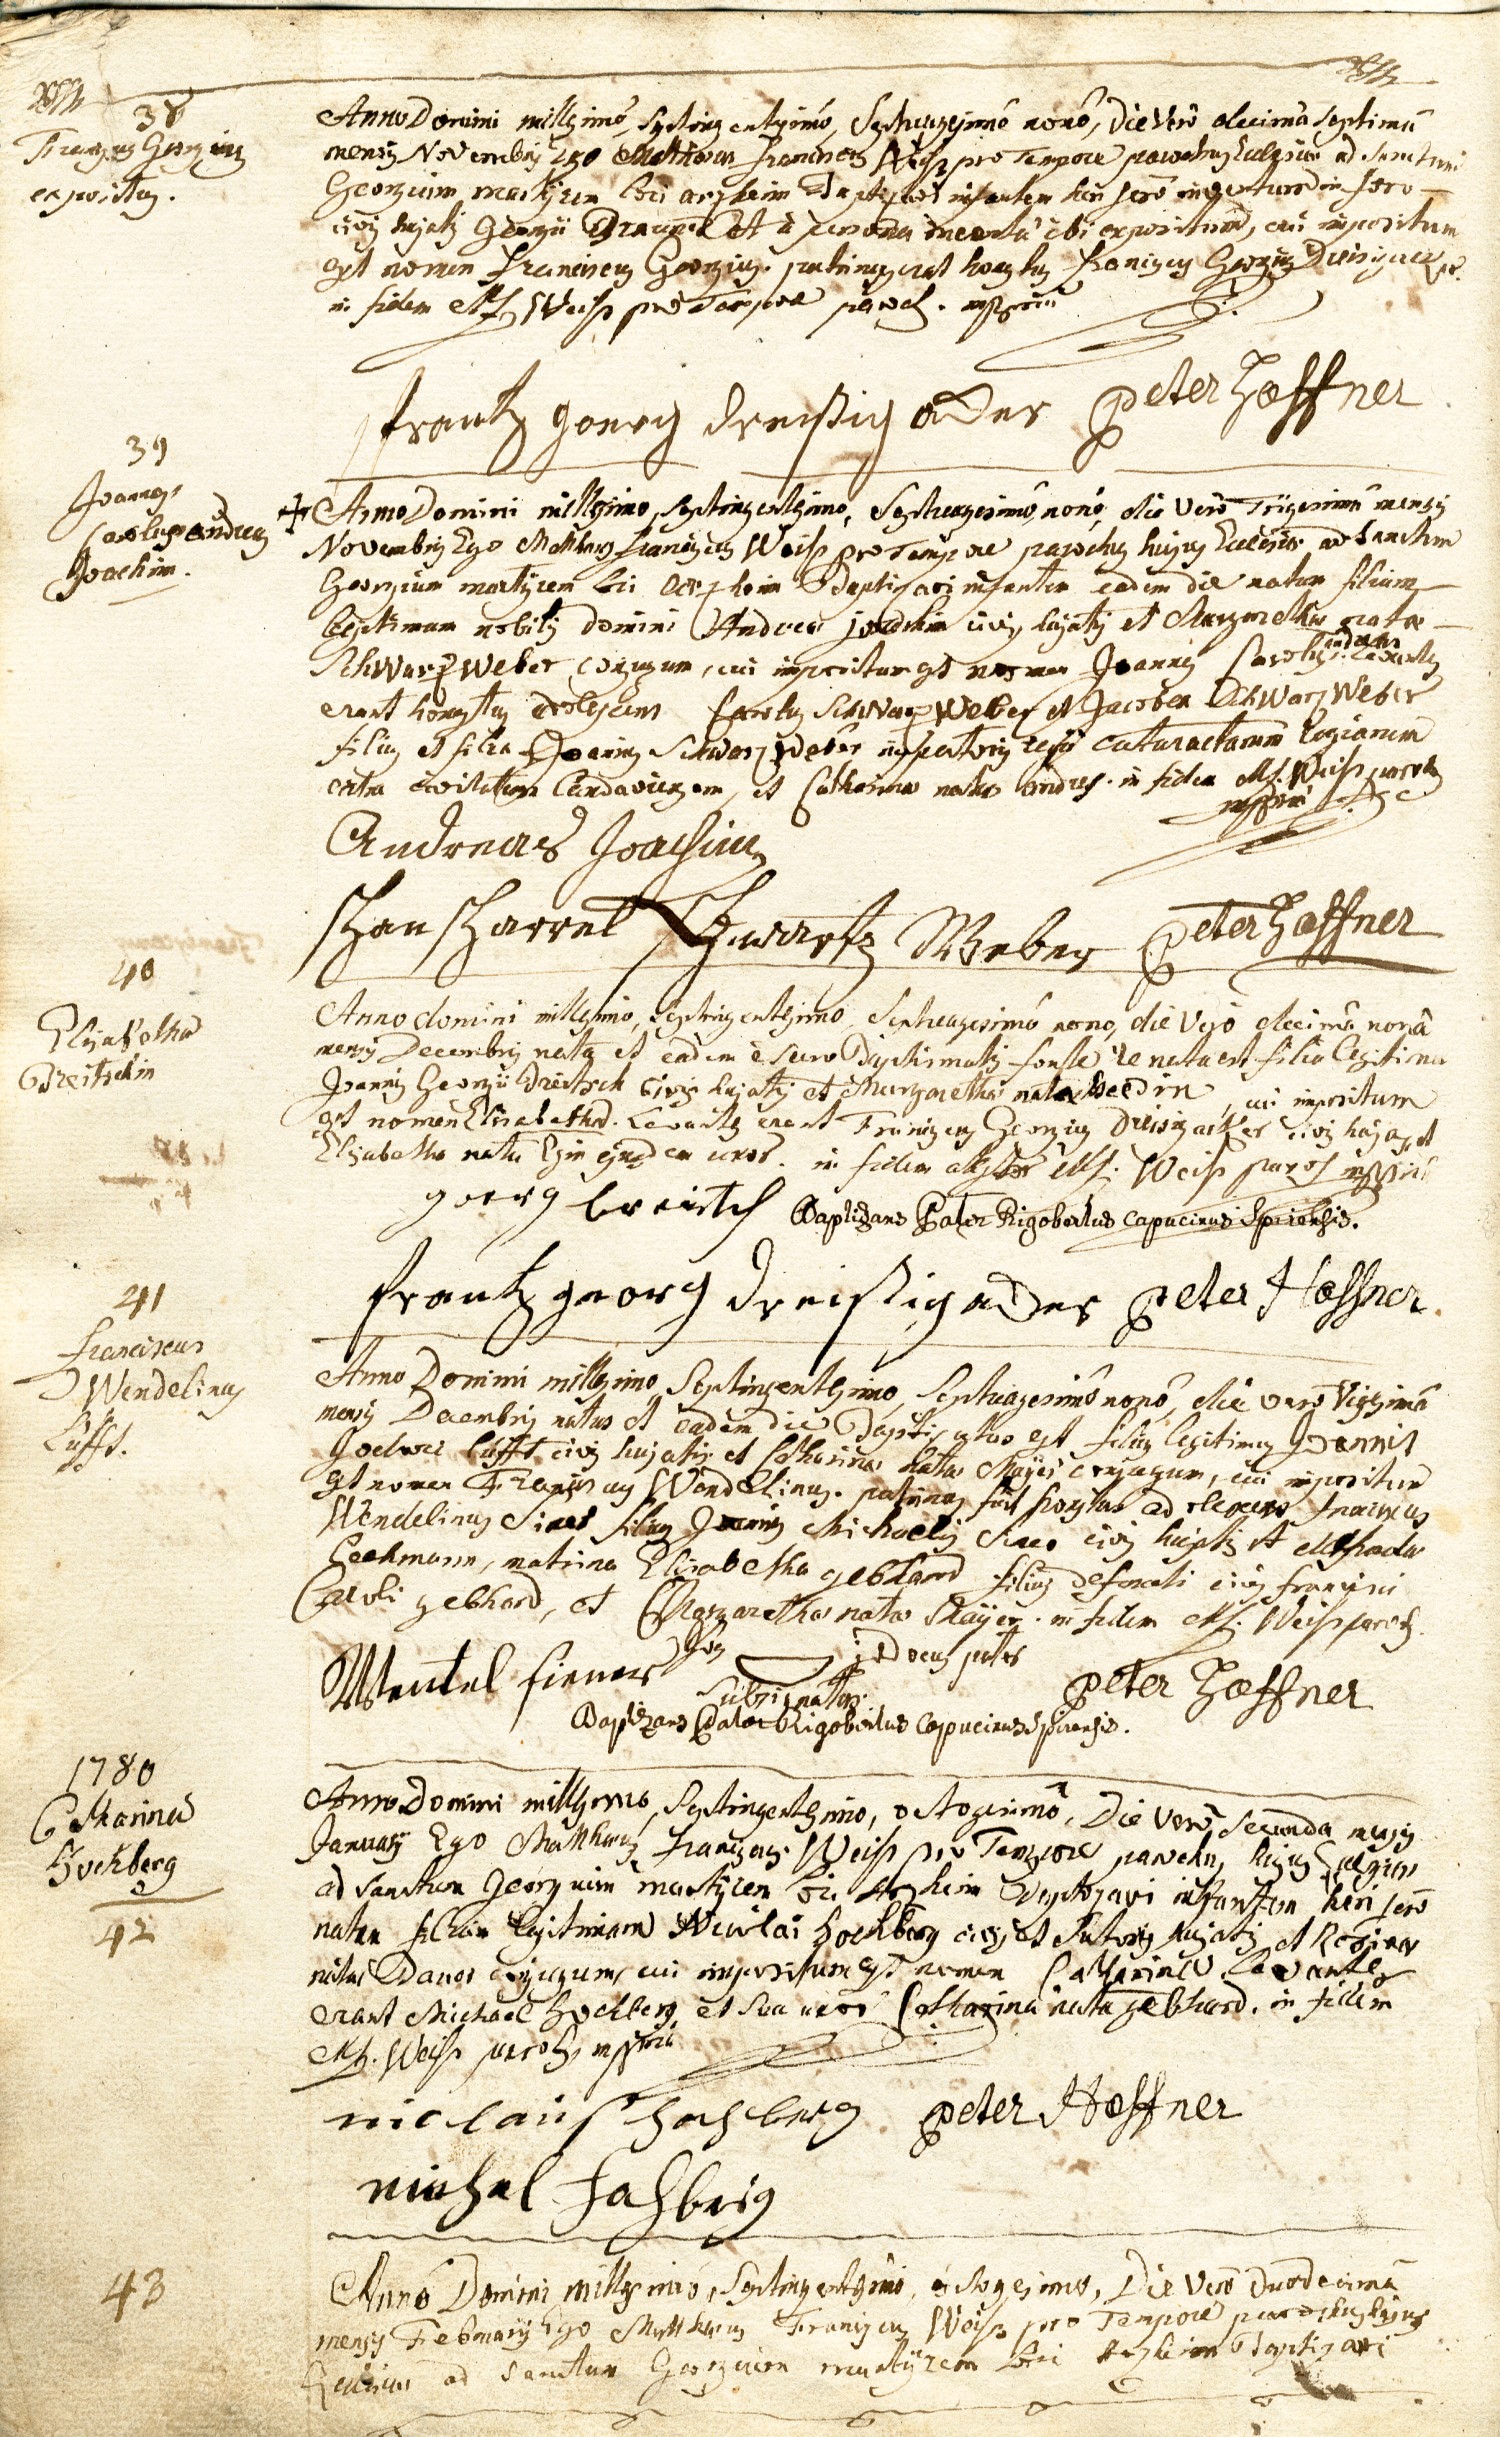 38
Franciscus Georgius
expositus.
Anno Domini millesimo, Septingentesimo, Septuagesimo nono, die vero decima septima
mensis Novembris Ego Matthaeus Franciscus Weiss pro Tempore parochus Ecclesiae ad Sanctum
Georgium martyrem loci arzheim Baptizavi infantem heri sero inventum in foro
civis hujatis Georgii et a persona incerta ibi expositum, cui impositum
est nomen Franciscus Georgius. patrinus erat honestus Franciscus Georgius Dreisigacker
in fidem Mf. Weiss pro Tempore paroch. mppria
frantz georg dreissigacker Peter Hoeffner
39
Joannes
Carolus Andreas
Joachim.
Anno Domini millesimo, Septingentesimo, Septuagesimo nono, die vero Trigesima mensis
Novembris Ego Matthaeus Franciscus Weiss pro Tempore parochus hujus Ecclesiae ad Sanctum
Georgium martyrem loci arzheim Baptizavi infantem eadem die natum filium
legitimum nobilis domini Andreae joachim civis hujatis et Margarethae natae
Schwarzweber conjugum, cui impositum est nomen Joannes Carolus andreas Levantes
erant honestus adolescens Carolus Schwarzweber et Jacobea Schwarzweber
filius et filia Joannis Schwarzweber inspectoris cataractarum regiarum
extra civitatem Landaviensem, et Catharinae natae in fidem Mf. Weiss parochus
mppria
Andreas Joachim
Schan Scharrel Schwartz Weber Peter Hoeffner
40
Elisabetha
Breitschin
Anno domini millesimo, Septingentesimo, Septuagesimo nono, die vero decima nona
mensis Decembris nata et eadem e sacro Baptismatis fonte renata est filia legitima
Joannis Georgii Breitsch civis hujatis et Margaretha nata , cui impositum
est nomen Elisabetha. Levantes erant Franciscus Georgius Dreisigacker civis hujas et
Elisabetha nata ejusdem uxor. in fidem Mf. Weiss paroch mppria
georg breitsch Baptizans Pater Rigobertus Capucinus Spirensis.
frantz georg dreissigacker Peter Hoeffner.
41
Franciscus
Wendelinus
Lufft.
Anno Domini millesimo, Septingentesimo, Septuagesimo nono, die vero Vigesima
mensis Decembris natus et eadem die Baptizatus est filius legitimus Joannis
Jodoci Lufft civis hujatis et Catharinae natae Mayer conjugum, cui impositum
est nomen Franciscus Wendelinus. patrinus fuit honestus adolescens Franciscus
Wendelinus filius Joannis Michaelis civis hujatis et
Heckmann, matrina Elisabetha gebhard filia defuncti civis Francisci
Caroli gebhard, et Margaretha nata Mayer. in fidem Mf. Weiss paroch.
Wentel jodocus pater
Peter Hoeffner
Baptizans Pater Rigobertus Capucinus Spirensis.
1780
Catharina
Hochberg
42
Anno Domini millesimo, Septingentesimo, octogesimo, Die vero Secunda mensis
Januarii Ego Matthaeus Franciscus Weiss pro Tempore parochus hujus Ecclesiae
ad Sanctum Georgium martyrem loci Arzheim Baptizavi infantem heri sero
natam filiam legitimam Nicolai Hochberg civis et Sutoris hujatis et Reginae
natae conjugum, cui impositum est nomen Catharina. Levantes
erant Michael Hochberg, et sua uxor Catharina nata gebhard. in fidem
Mf. Weiss paroch mppria
niclaus hochberg Peter Hoeffner
michel hochberg
43
Anno Domini millesimo, Septingentesimo, octogesimo, Die vero Duodecima
mensis Februarii Ego Matthaeus Franciscus Weiss pro Tempore parochus hujus
Ecclesiae ad Sanctum Georgium martyrem loci Arzheim Baptizavi